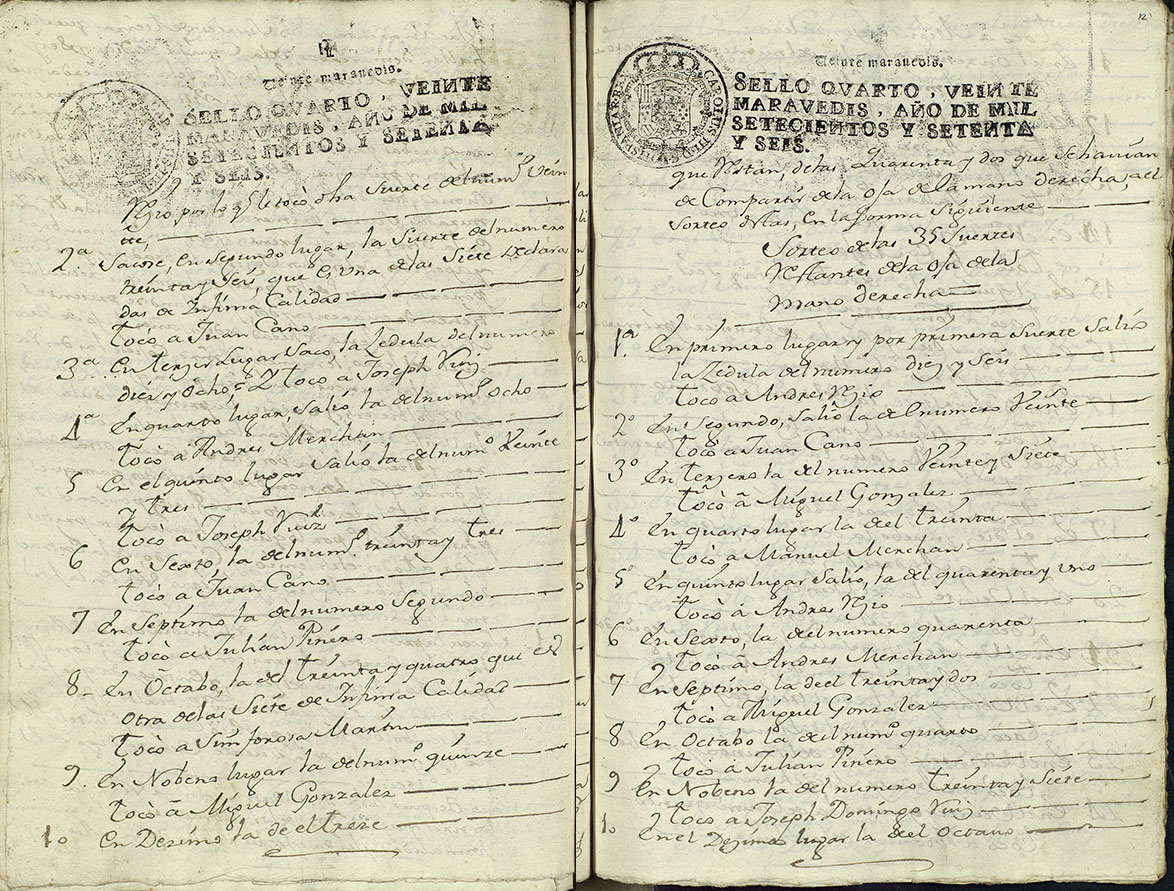 Veinte marauedis.
SELLO QVARTO, VEINTE
MARAVEDIS, AÑO DE MIL
SETECIENTOS Y SETENTA
Y SEIS.
por lo q.e le tocò dha Suerte del num.o Vein
te,
2a Sacose, en Segundo lugar, la Suerte del numero
treinta y Seis, que es Vna de las Siete Declara
das de Infima Calidad
tocò a Juan Cano
3a En terzer Lugar Saco, la Zedula del numero
diez y ocho, Y toco a Joseph
4a En quarto lugar, Saliò la del num.o ocho
tocò à Andres Merchan
5 En el quinto lugar Saliò la del num.o Veinte
y tres
tocò à Joseph
6 En Sexto, la del num.o treinta y tres
tocò à Juan Cano
7 En Septimo la del numero Segundo
tocò a Julian Piñero
8 En Octabo, la del treinta y quatro que es
otra de las Siete de Infima Calidad
tocò a Simforosa Martin
9. En Nobeno lugar la del num.o quinze
tocò à Miguel Gonzalez
10 En Dezimo la de el treze
12
Veinte marauedis.
CAROLUS III D G HISPANIAR REX
SELLO QVARTO, VEINTE
MARAVEDIS, AÑO DE MIL
SETECIENTOS Y SETENTA
Y SEIS.
que Restan, de las Quarenta y dos que se havian
de Compartir de la oja de la mano derecha, el
Sorteo en la forma Siguiente
Sorteo de las 35 Suertes
Restantes de la oja de la
mano derecha
1a En primero lugar y por primera Suerte Saliò
la Zedula del numero diez y Seis
tocò a Andres Rejio
2o En Segundo, Saliò la del numero Veinte
tocò a Juan Cano
3o En terzero la del numero Veinte y Siete
tocò à Miguel Gonzalez
4o En quarto lugar la del treinta
tocò a Manuel Merchan
5o En quinto lugar Saliò, la del quarenta y uno
tocò à Andres Rejio
6 En Sexto, la del numero quarenta
y tocò à Andres Merchan
7 En Septimo, la de el treinta y dos
y tocò a Miguel Gonzalez
8 En Octabo la del num.o quarto
y tocò à Julian Piñero
9 En Nobeno la del numero treinta y Siete
y toco a Joseph Domingo
10 En el Dezimo lugar la del Octauo